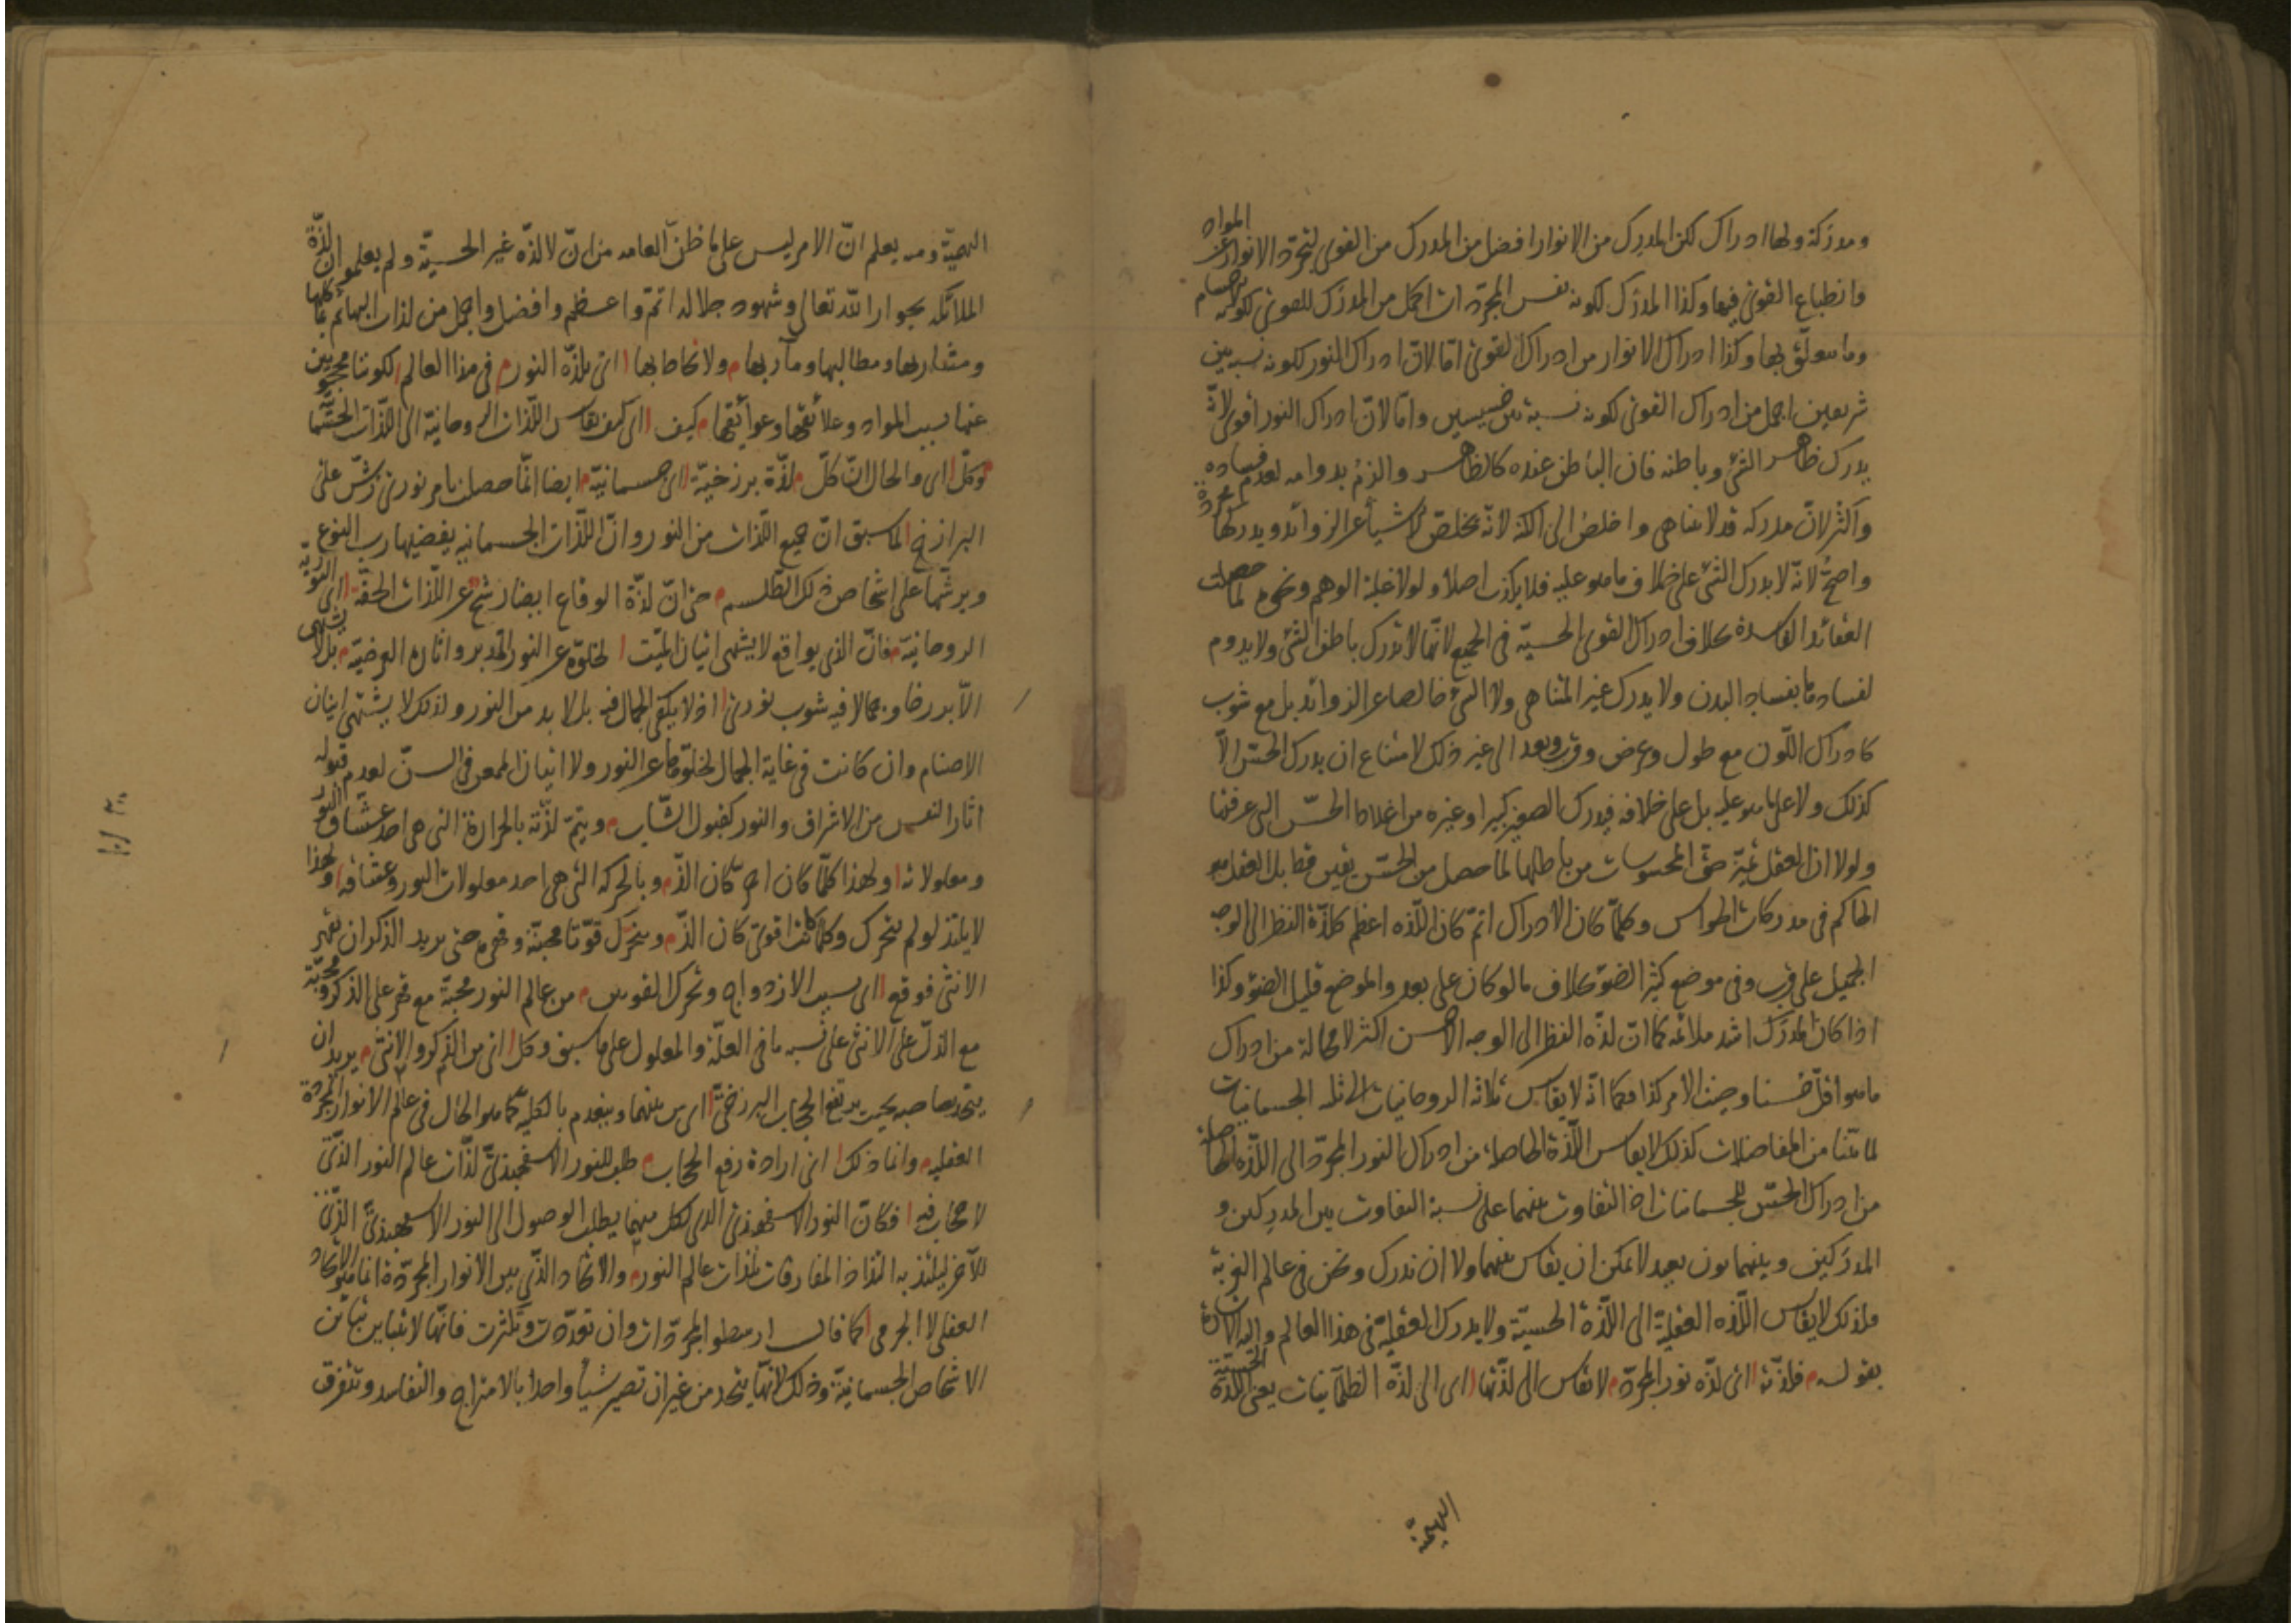 ومدركة ولها ادراك لكن المدرك من الانوار افضل من المدرك من القوى لتجرد الانوار عن المواد
وانطباع القوى فيها وكذا المدرك لكونه نفس المجردات اكمل من المدرك للقوى لكونه
وما يتعلق بها وكذا ادراك الانوار من ادراك القوى امّا لان ادراك النور لكونه نسبة بين
شريفين اجمل من ادراك القوى لكونه نسبة بين خسيسين وامّا لانّ ادراك النور اقوى لانّه
يدرك ظاهر الشئ وباطنه فان الباطن عنده كالظاهر والزم بدوامه لعدم فساده
واكثر لانّ مدركه قد لا يتناهى واخلص الى الكنه لانّه يخلص الاشيأ عن الزوائد ويدركها مجردة
واصحّ لانّه لا يدرك الشئ على خلاف ما هو عليه فلا يكذب اصلا ولولا غلبة الوهم ونحوه لما حصلت
العقائد الفاسدة بخلاف ادراك القوى الحسيّة فى الجميع لانّها لا تدرك باطن الشئ ولا يدوم
لفسادها بفساد البدن ولا يدرك غير المتناهى ولا الشئ خالصا عن الزوائد بل مع شوب
كادراك اللّون مع طول وعرض وقرب وبعد الى غير ذلك لامتناع ان يدرك الحسّ الاّ
كذلك ولا على ما هو عليه بل على خلافه فيدرك الصغير كبيرا وغيره من اغلاط الحسّ التى عرفتها
ولولا ان العقل يميّز حقّ المحسوسات من باطلها لما حصل من الحسّ يقين قط بل العقل هو
الحاكم فى مدركات الحواس وكلّما كان الادراك اتمّ كان اللّذه اعظم كلذّة النظر الى الوجه
الجميل على قرب وفى موضع كثير الضوء بخلاف ما لو كان على بعد والموضع قليل الضوء وكذا
اذا كان المدرك اشد ملائمة كما انّ لذّه النظر الى الوجه الاحسن اكثر لا محالة من ادراك
ما هو اقلّ حسنا وحيث الامر كذا فكما انّه لا يقاس ثلاثة الروحانيات الى ثلثه الجسمانيات
لما بيّنا من المفاضلات كذلك لا يقاس اللّذة الحاصلة من ادراك النور المجرّد الى اللّذه الحاصلة
من ادراك الحسّ للجسمانيات اذ التفاوت بينهما على نسبة التفاوت بين المدركين و
المدركين وبينهما بون بعيد لا يمكن ان يقاس بينهما ولا ان ندرك ونحن فى عالم الغربة
فلذلك لا يقاس اللّذه العقلية الى اللّذة الحسيّة ولا يدرك العقلية فى هذا العالم واليه الاشارة
بقوله فلذّته اى لذّه نور المجرّد لا تقاس الى لذّتها اى الى لذّه الظلمانيات يعنى اللّذة الحسيّة
البهيميّة
البهيميّة ومنه يعلم انّ الامر ليس على ما ظنّ العامه من ان لا لذّه غير الحسيّة ولم يعلموا ان لذّة
الملائكه بجوار اللّه تعالى وشهود جلاله اتمّ واعظم وافضل واجلّ من لذات البهائم بمأكلها
ومشاربها ومطالبها ومآربها ولا نحاط بها اى بلذّه النور فى هذا العالم لكوننا محجوبين
عنها بسبب المواد وعلائقها وعوائقها كيف اى كيف يقاس اللّذات الروحانيّة الى اللّذات الجسمانيّة
وكلّ اى والحال انّ كلّ لذّة برزخيّة اى جسمانيّة ايضا انّما حصلت بامر نورىّ رشّ على
البرازخ لما سبق انّ جميع اللّذات من النور وانّ اللّذات الجسمانيه يفيضها رب النوع
ويرشّها على اشخاص ذلك الطّلسم حتى انّ لذّة الوقاع ايضا رشح عن اللّذات الحقّة اى النوريّه
الروحانيّة فانّ الذى يواقع لا يشتهى اتيان الميّت لخلوّه عن النور المدبر واثاره العرضيّة بل لا يشتهى
الاّ برزخا وجمالا فيه شوب نورىّ اذ لا يكفى الجمال فيه بل لا بد من النور ولذلك لا يشتهى اتيان
الاصنام وان كانت فى غاية الجمال لخلوّها عن النور ولا اتيان الممعن فى السنّ لعدم قبوله
اثار النفس من الاشراق والنور كقبول الشّاب ويتمّ لذّته بالحرارة التى هى احد عشّاق النور
ومعلولاته ولهذا كلّما كان احرّ كان الذّ وبالحركه التى هى احد معلولات النور وعشاقه ولهذا
لا يلتذ لو لم يتحرك وكلّما كانت اقوى كان الذّ ويتحرّك قوّتا محبّته وقهره حتى يريد الذكر ان يقهر
الانثى فوقع اى بسبب الازدواج وتحرك القوتين من عالم النور محبّة مع قهر على الذكر ومحبّة
مع الذلّ على الانثى على نسبه ما فى العلّة والمعلول على ما سبق وكل اى من الذكر والانثى يريد ان
يتحد بصاحبه بحيث يرتفع الحجاب البرزخىّ اى من بينهما وينعدم بالكليّه كما هو الحال فى عالم الانوار المجرّدة
العقليه وانما ذلك اى ارادة رفع الحجاب طلب للنور الاسفهبذىّ لذّات عالم النور الّذى
لا حجاب فيه فكانّ النور الاسفهبذى الذى لكل منهما يطلب الوصول الى النور الاسفهبذىّ الّذى
للآخر ليلتذ به التذاذ المفارقات بلذات عالم النور والاتحاد الّذى بين الانوار المجرّدة انما هو الاتحاد
العقلى لا الجرمى كما قال ارسطو المجرّدات وان تعدّدت وتكثرت فانّها لا تتباين تباين
الاشخاص الجسمانيّة وذلك لانّها يتحد من غير ان تصير شيأ واحدا بالامتزاج والتفاسد وتتفرق